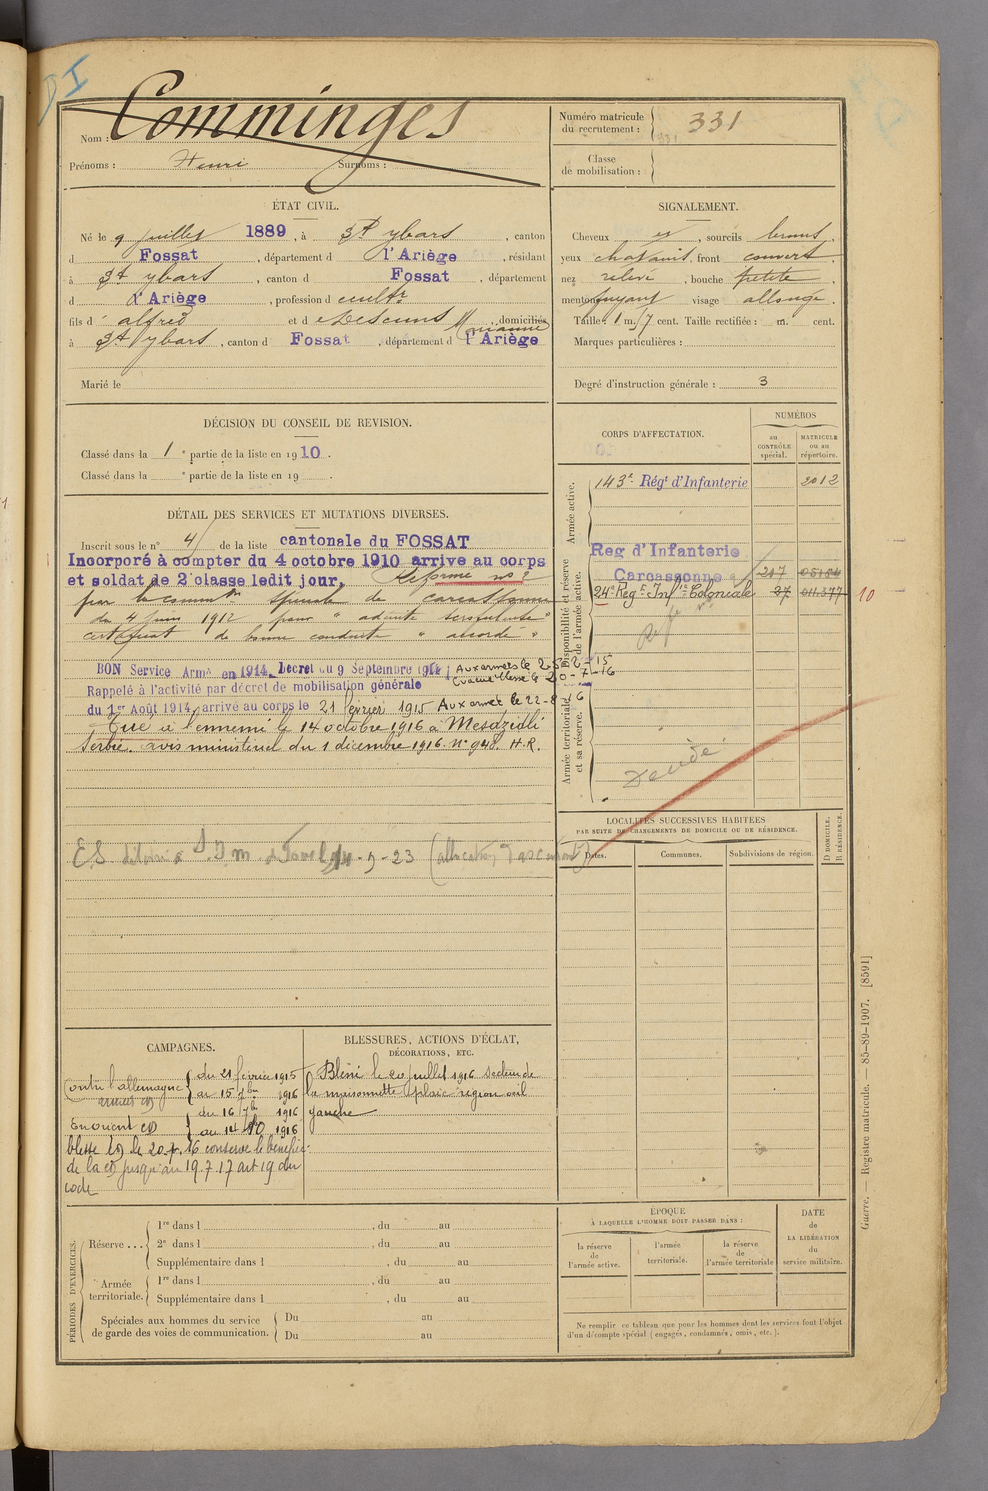 Comminges
Nom :
Prénoms : Henri Surnoms :
Numéro matricule
du recrutement : 331
Classe
de mobilisation :
ÉTAT CIVIL.
Né le 9 juillet 1889, à St ybars, canton
d Fossat, département d l'Ariège, résidant
à St ybars, canton d Fossat, département
d l'Ariège, profession d cultr
fils d alfred et d Descuns Marianne, domiciliés
à St ybars, canton d Fossat, département d l'Ariège
Marié le
SIGNALEMENT.
Cheveux et, sourcils bruns,
yeux chatains, front couvert,
nez relevé, bouche petite,
menton fuyant visage allongé.
Taille : 1 m. 7 cent. Taille rectifiée : m. cent.
Marques particulières :
Degré d'instruction générale : 3
DÉCISION DU CONSEIL DE REVISION.
Classé dans la 1e partie de la liste en 1910.
Classé dans la e partie de la liste en 19 .
DÉTAIL DES SERVICES ET MUTATIONS DIVERSES.
Inscrit sous le n° 4 de la liste cantonale du FOSSAT
Incorporé à compter du 4 octobre 1910 arrive au corps
et soldat de 2e classe ledit jour. Réformé no 2
par la common spéciale de Carcassonne
du 4 juin 1912 pour
certificat de bonne conduite "accordé"
BON Service Armé en 1914. Décret du 9 Septembre 1914
Aux armées le 25-2-15
évacué blessé le 20-7-16
Rappelé à l'activité par décret de mobilisation générale
du 1er Août 1914, arrivé au corps le 21 février 1915 Aux armées le 22-8-16
Tué à l'ennemi le 14 octobre 1916 à Mesdzidli
Serbie. avis ministériel du 1 décembre 1916. N° 948. H.R.
CORPS D'AFFECTATION.
NUMÉROS
au
CONTRÔLE
spécial.
MATRICULE
ou au
répertoire.
Armée active.
143e Régt d'Infanterie 2012
Disponibilité et réserve
de l'armée active.
Reg d'Infanterie
Carcassonne 207 05184
24e Regt Infie Coloniale 37 011.377
10
Armée territoriale
et sa réserve.
Décédé
ES 9-23 (allocation d'ascendant)
LOCALITÉS SUCCESSIVES HABITÉES
PAR SUITE DE CHANGEMENTS DE DOMICILE OU DE RÉSIDENCE.
Dates.
Communes.
Subdivisions de région.
D DOMICILE.
R RÉSIDENCE.
CAMPAGNES.
Contre l'allemagne
du 21 février 1915
au 15 7bre 1916
du 16 7bre 1916
En orient
au 14 10 1916
blessé le 20.7.16 conserve le bénéfice
de la jusqu'au 19.7.17 art 19 du
code
BLESSURES, ACTIONS D'ÉCLAT,
DÉCORATIONS, ETC.
Blessé le 20 juillet 1916 Secteur de
la maisonnette plaie région œil
gauche
PÉRIODES D'EXERCICES.
Réserve ...
1re dans l , du au
2e dans l , du au
Supplémentaire dans l , du au
Armée
territoriale.
1re dans l , du au
Supplémentaire dans l , du au
Spéciales aux hommes du service
de garde des voies de communication.
Du au
Du au
ÉPOQUE
À LAQUELLE L'HOMME DOIT PASSER DANS :
la réserve
de
l'armée active.
l'armée
territoriale.
la réserve
de
l'armée territoriale
DATE
de
LA LIBÉRATION
du
service militaire.
Ne remplir ce tableau que pour les hommes dont les services font l'objet
d'un décompte spécial (engagés, condamnés, omis, etc.).
Guerre. — Registre matricule. — 85-89-1907. [8591]